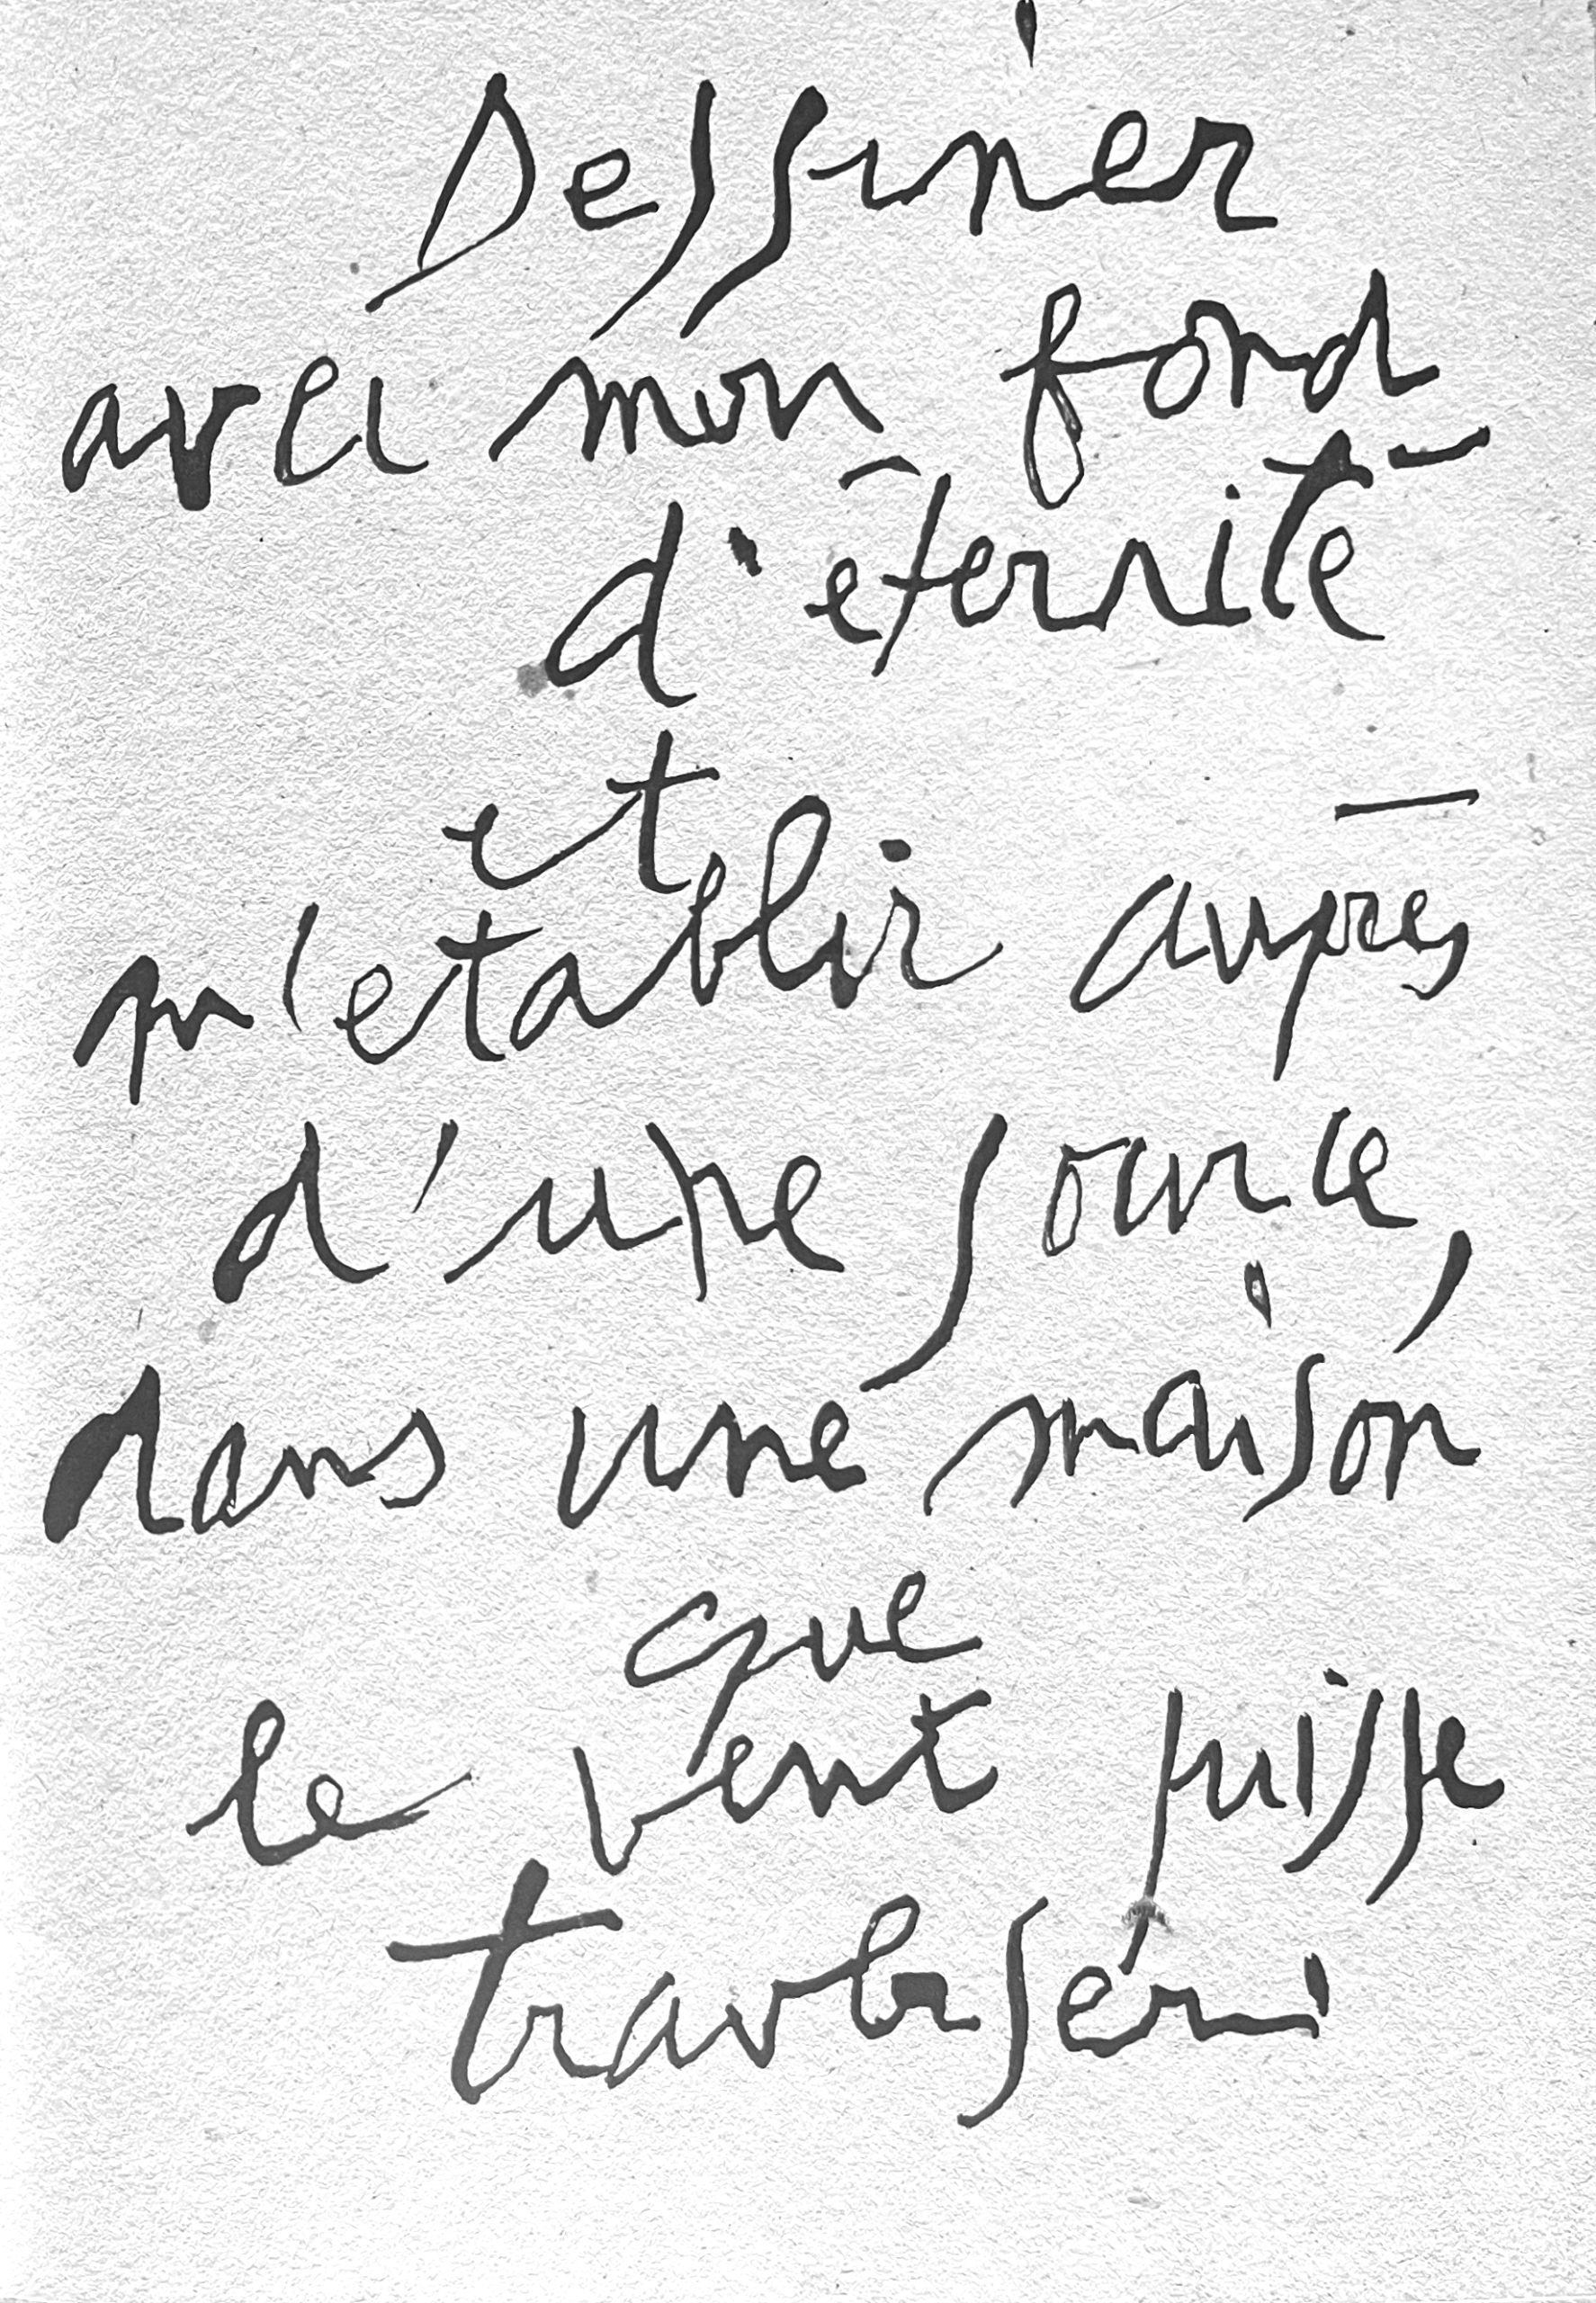 Dessiner
avec mon fond
d'éternité
et
m'établir auprès
d'une source,
dans une maison
que
le vent puisse
traverser.